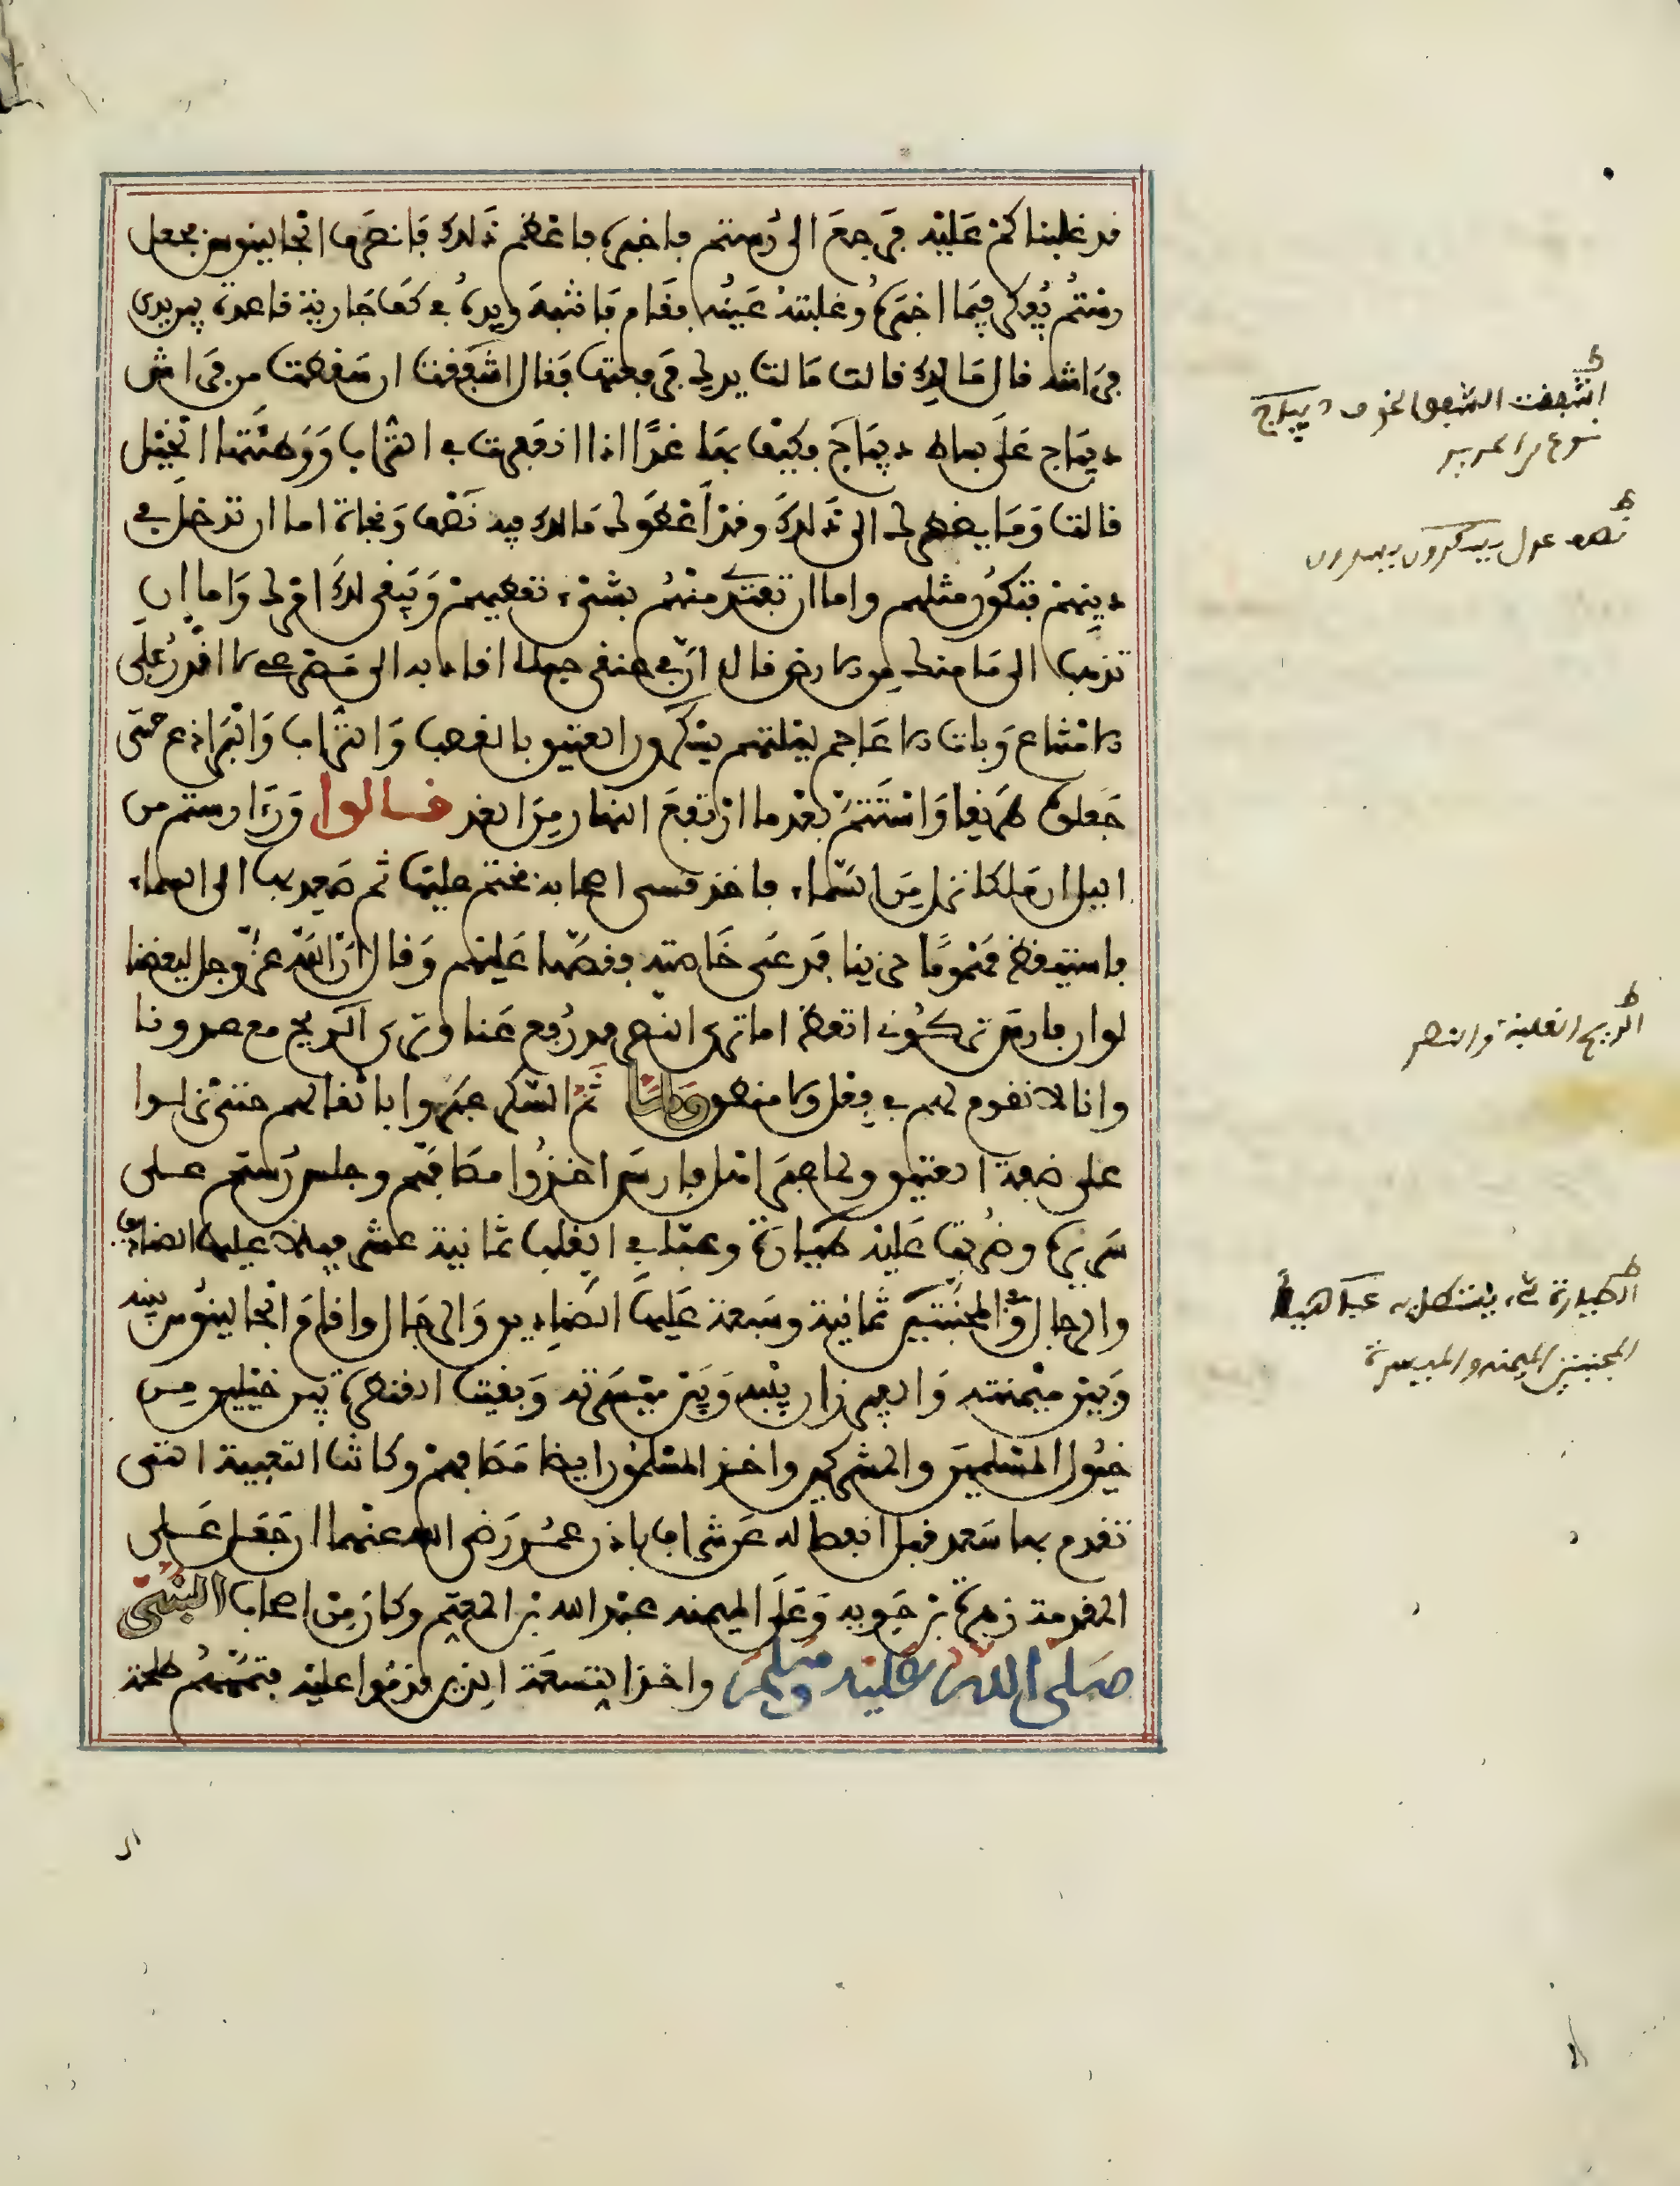 قد غلبناكم عليه فرجع الى رستم فاخبره فاعظم ذلك فانصرف الجالينوس فجعل
رستم يفكر فيما اخبره وغلبته عينه فقام فانتبه ويده في كف جارية قاعدة بين يدي
فراشه قال مالك قالت مالت يدك فرفعتها فقال اشفقت ان سقطت من فراش
ديباج على بساط ديباج فكيف بها غدًا اذا ارتفعت في التراب ووطئتها الخيل
قالت وما يضطرك الى ذلك وقد اعطوك مالك فيه نصف ونجاة اما ان تدخل في
دينهم فتكون مثلهم واما ان تفتدي منهم بشيء تعطيهم ويبقى لك امرك واما ان
تذهب الى مامنك من الارض قال ان في عنقي حبلا اقاد به الى مصرعي لا اقدر على
الامتناع وبات الاعاجم ليلتهم يسكرون العتيق بالقصب والتراب والبراذع حتى
جعلوه طريقا واستتم بعدما ارتفع النهار من الغد قالوا ورءا رستم من
الليل ان ملكا نزل من السماء فاخذ قسي اصحابه فختم عليها ثم صعد بها الى السماء
فاستيقظ مهموما حزينا فدعى خاصته فقصها عليهم وقال ان الله عز وجل ليعضنا
لو ان فارس تركوني اتعظ اما ترى النصر قد رفع عنا وترى الريح مع عدونا
وانا لا نقوم لهم في فعل ولا منطق ثم السكر عبروا باثقالهم حتى نزلوا
على ضفة العتيق ولما عبر اهل فارس اخذوا مصافهم وجلس رستم على
سريره وضرب عليه طيارة وعبا في القلب ثمانية عشر فيلا عليها الصناديق
والرجال وفي المجنبتين ثمانية وسبعة عليها الصناديق والرجال واقام الجالينوس بينه
وبين ميمنته والفيرزان بينه وبين ميسرته وبقيت القنطرة بين خيلين من
خيول المسلمين والمشركين واخذ المسلمون ايضا مصافهم وكانت التعبية التي
تقدم بها سعد قبل انفصاله عن شراف باذن عمر رضي الله عنهما ان جعل على
المقدمة زهرة بن حوية وعلى الميمنه عبد الله بن المعتم وكان من اصحاب النبي
صلى الله عليه وسلم واحد التسعة الذين قدموا عليه فتممهم طلحة
اشفقت الشفق الخوف ديباج
نوع من الحرير
نصف عدل يسكرون يسدون
الريح الغلبة والنصر
الطيارة شيء يتشكل به
المجنبتين الميمنه والميسرة